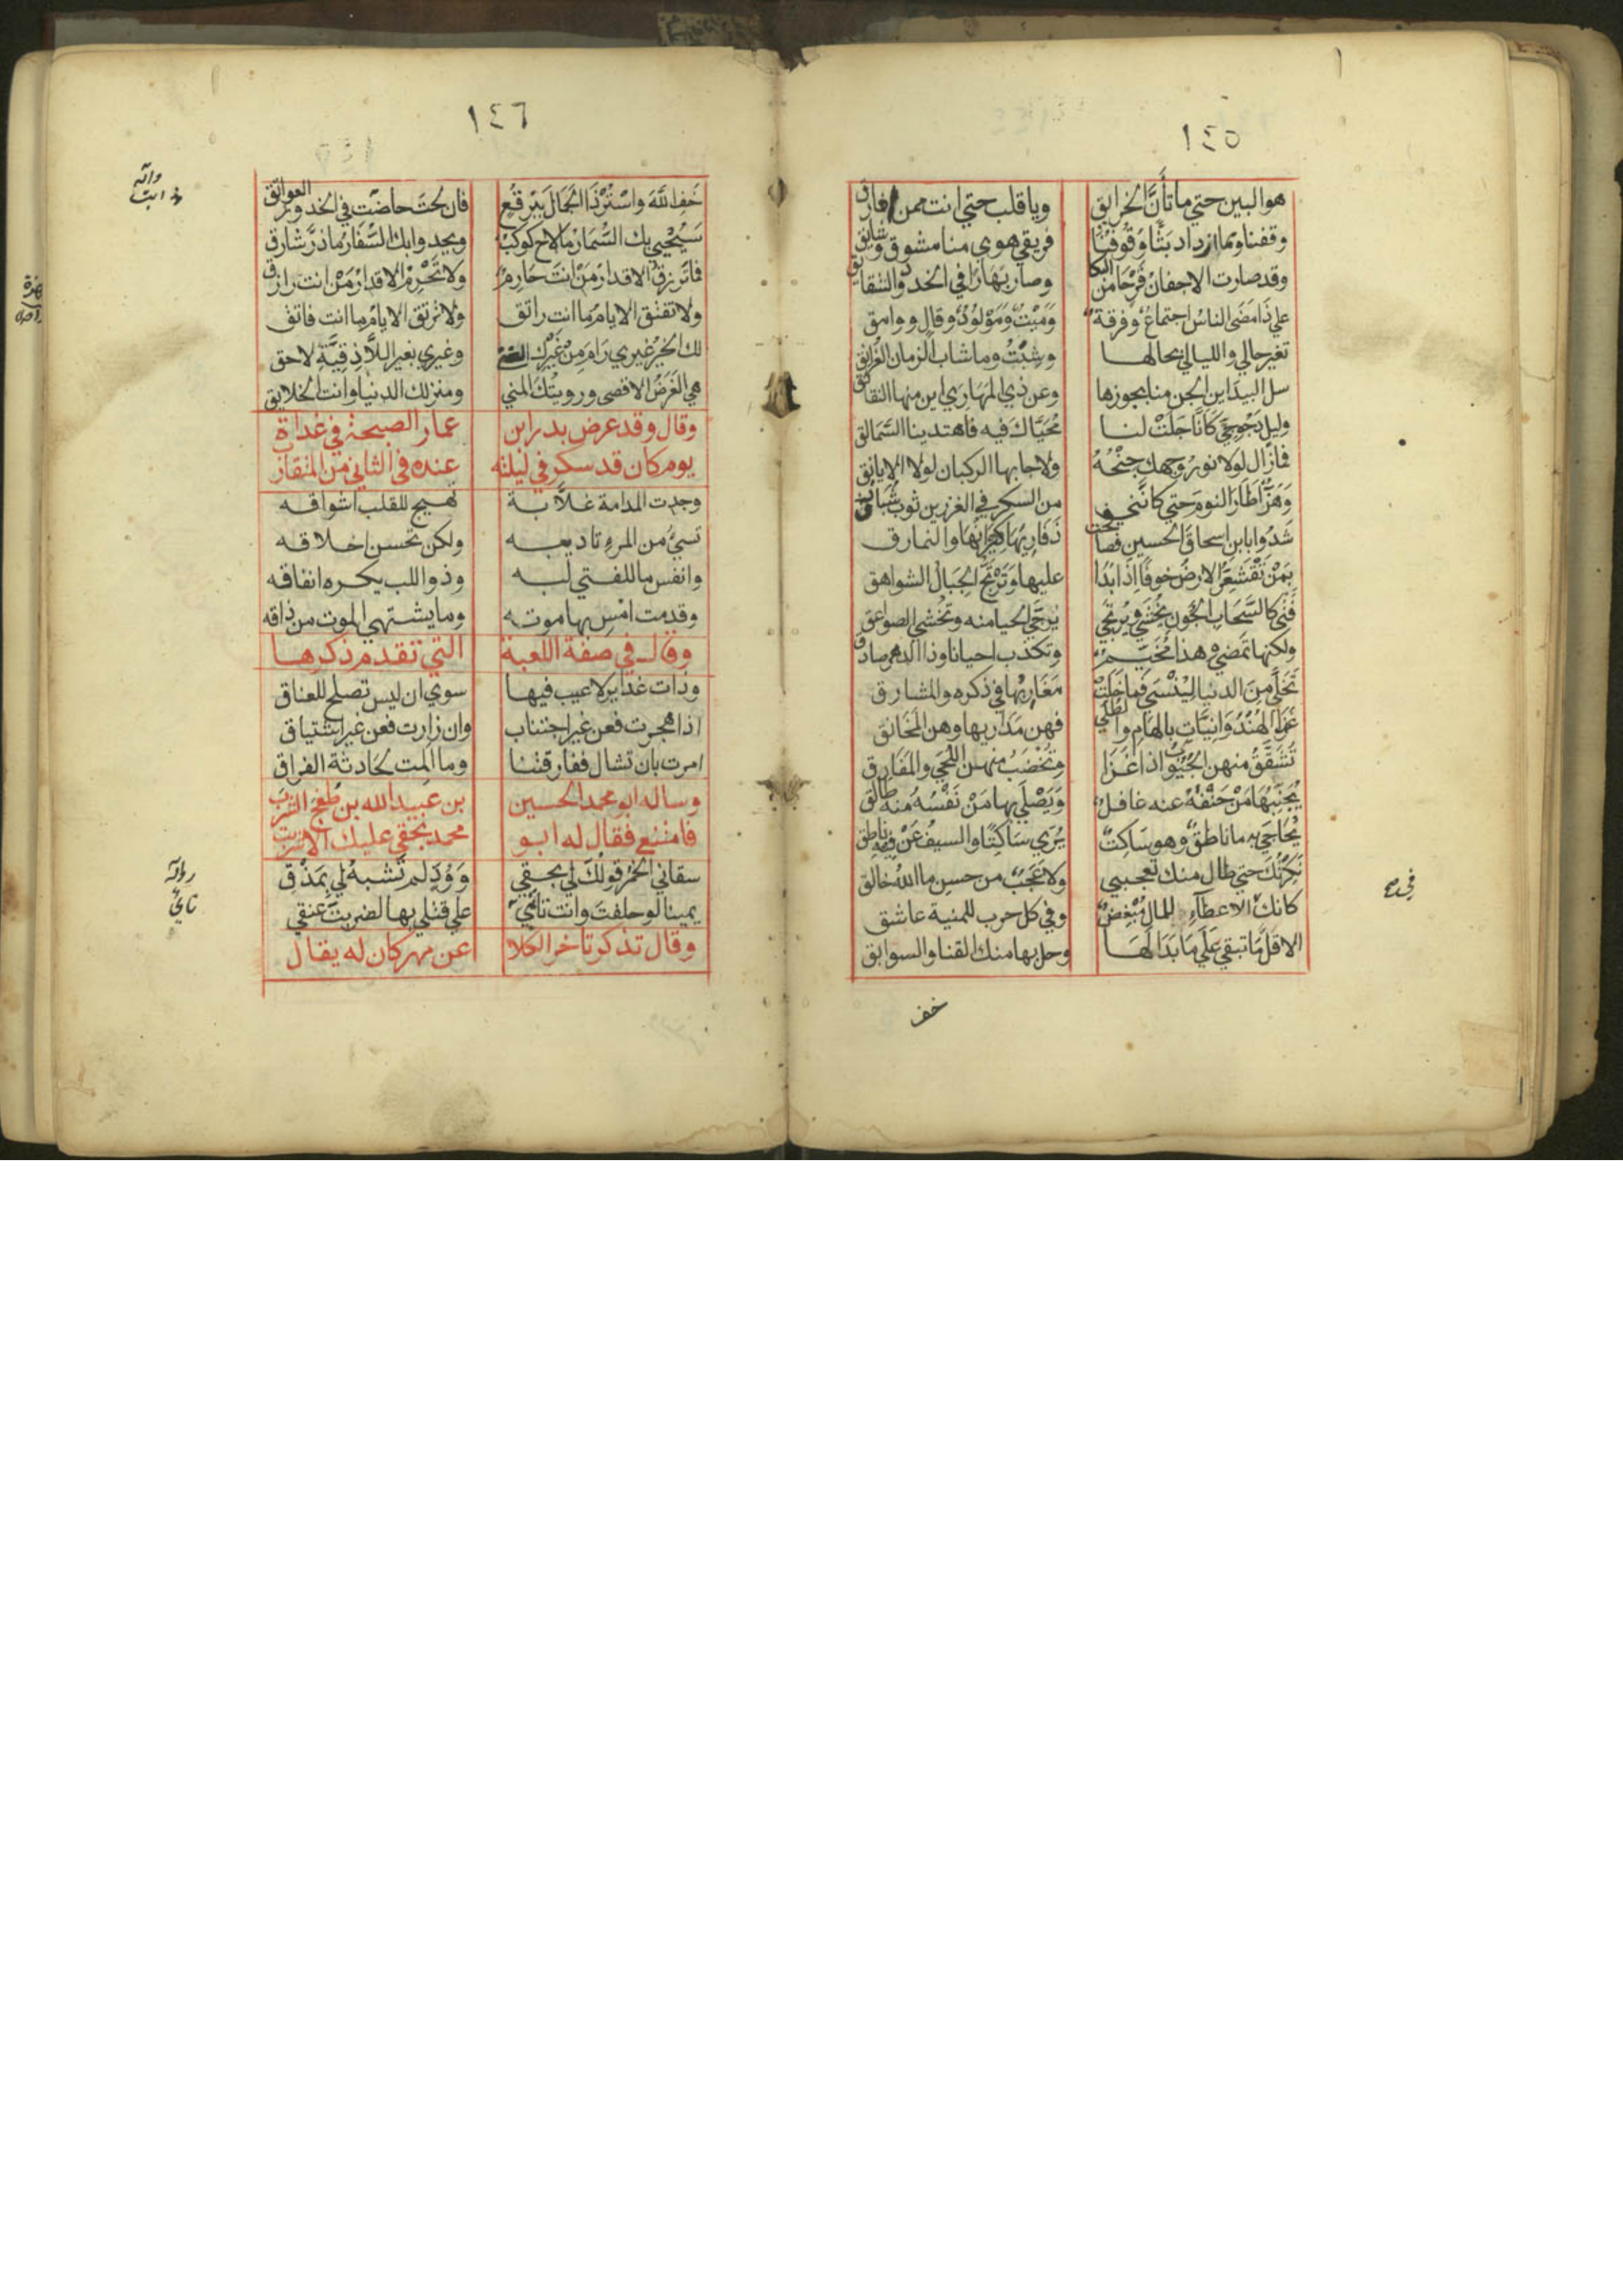 ١٤٥
هو البين حتي ما تأنَّ الخزايق وياقلب حتي انت ممن افارق
وقفنا ومما زاد بَثًّا وُقُوفُنَا فريقي هوى منا مشوق وشايق
وقد صارت الاجفان قَرْحَا من البكا وصار بَهَارًا في الخدود الشقايق
علي ذا مَضَى الناسُ اجتماعٌ وفرقة ومَيْتٌ ومَوْلُودٌ وقالٍ ووامق
تغير حالي والليالي بحالها وشِبْتُ وما شاب الزمان الغُرانق
سل البيد اين الجن منا بجوزها وعن ذي المَهَارِي اين منها النقانق
وليلٍ دَجُوجِيٍّ كَانَّا جَلَتْ لنا مُحَيَّاكَ فيه فاهتدينا السَّمَالق
فما زال لولا نورُ وجهك جِنْحُهُ ولا جابها الركبان لولا الايانق
وَهَزٌّ اَطَارَ النومَ حتي كانني من السكر في الغرزين ثوب شُبَارق
شَدُوا بابنِ اسحاقَ الحسينِ فصافحت ذَفَارِيهَا كِيرَانُهَا والنمارق
بِمَنْ تَقْشَعِرُّ الارضُ خوفًا اذا بَدَا عليها وَتَرْتَجُّ الجِبَالُ الشواهق
فَتًى كالسَّحَابِ الجُونِ يُخْشَي ويُرْتَجي يُرَجَّي الحيا منه وتُخْشَي الصواعق
ولكنها تمضي وهذا مُخَيِّمٌ وتكذب احيانا وذا الدهر صادق
تَخَلَّى مِنَ الدنيا لِيُنْسَي فما خَلَتْ مَغَارِبُها في ذكره والمشارق
غَزَا الهُنْدُوَانِيَّات بالهَامِ والطُلَي فهن مَدَاريها وهن المَخَانق
تُشَقَّقُ منهن الجُيُوبُ اذا غَزَا وتُخْضَبُ منهن اللُّحَي والمَفَارق
يُجَنَّبُهَا مَنْ حَتْفُهُ عنه غافلٌ وَيَصْلَي بها مَنْ نَفْسُهُ منه طالق
يُحَاجَي بِهِ ما ناطقٌ وهو ساكتٌ يُرَي ساكتًا والسيفُ عَنْ فِيهِ ناطق
نَكِرْتُكَ حتي طال منك تعجبي ولا عَجَبٌ من حسن ما اللهُ خالق
كانك الاعطاءِ للمال مُبْغِضٌ وفي كل حرب للمنية عاشق
الا قَلَّمَا تبقي عَلَي مَا بَدَا لَهَا وحل بها منك القنا والسوابق
في
خف
١٤٦
خَفِ اللهَ واسْتُرْ ذَا الجَمَالَ بِبُرْقُعٍ فان لحتَ حاضت في الخدور العواتق
سَيُحْيِي بك السُّمَّارُ مَا لاح كوكبٌ ويحدوا بك السُّفَّارُ ما ذرَّ شارق
فما ترزقُ الاقدارُ مَنْ انتَ حَارِمٌ ولا تَحْرِمُ الاقدارُ مَنْ انت رازق
ولا تفتق الايامُ ما انت راتق ولا ترتق الايامُ ما انت فاتق
لك الخيرُ غيري رَامَ مِنْ غَيْرِكَ وغيري بغير اللاذقيَّةِ لاحق
هي الغَرَضُ الاقصى ورويتُكَ المني ومنزلك الدنيا وانت الخلايق
وقال وقد عرض بدر ابن عمار الصبحة في غداة
يوم كان قد سكر في ليلته عنده في الثاني من المتقارب
وجدت المدامة غلَّابة تهيج للقلب اشواقه
تسيُ من المرءِ تاديبه ولكن تحسن اخلاقه
وانفس ما للفتي لبه وذو اللب يكره انفاقه
وقد مت امسِ بها موته وما يشتهي الموت من ذاقه
وقال في صفة اللعبة التي تقدم ذكرها
وذات غداير لا عيب فيها سوي ان ليس تصلح للعناق
اذا هجرت فعن غير اجتناب وان زارت فعن غير اشتياق
امرت بان تشال ففارقتنا وما المت لحادثة الفراق
وساله ابو محمد الحسين بن عبيد الله بن طغج الشرب
فامتنع فقال له ابو محمد بحقي عليك الا شربت
سقاني الخمرَ قولُكَ لي بحقي وَوُدٍّ لم تشبهُ لي بِمَذْقِ
يمينا لو حلفتَ وانت تاءي علي قتلي بها لضربتُ عنقي
وقال تذكر تاخر الكلا عن مهر كان له يقال
رواية
ناءٍ